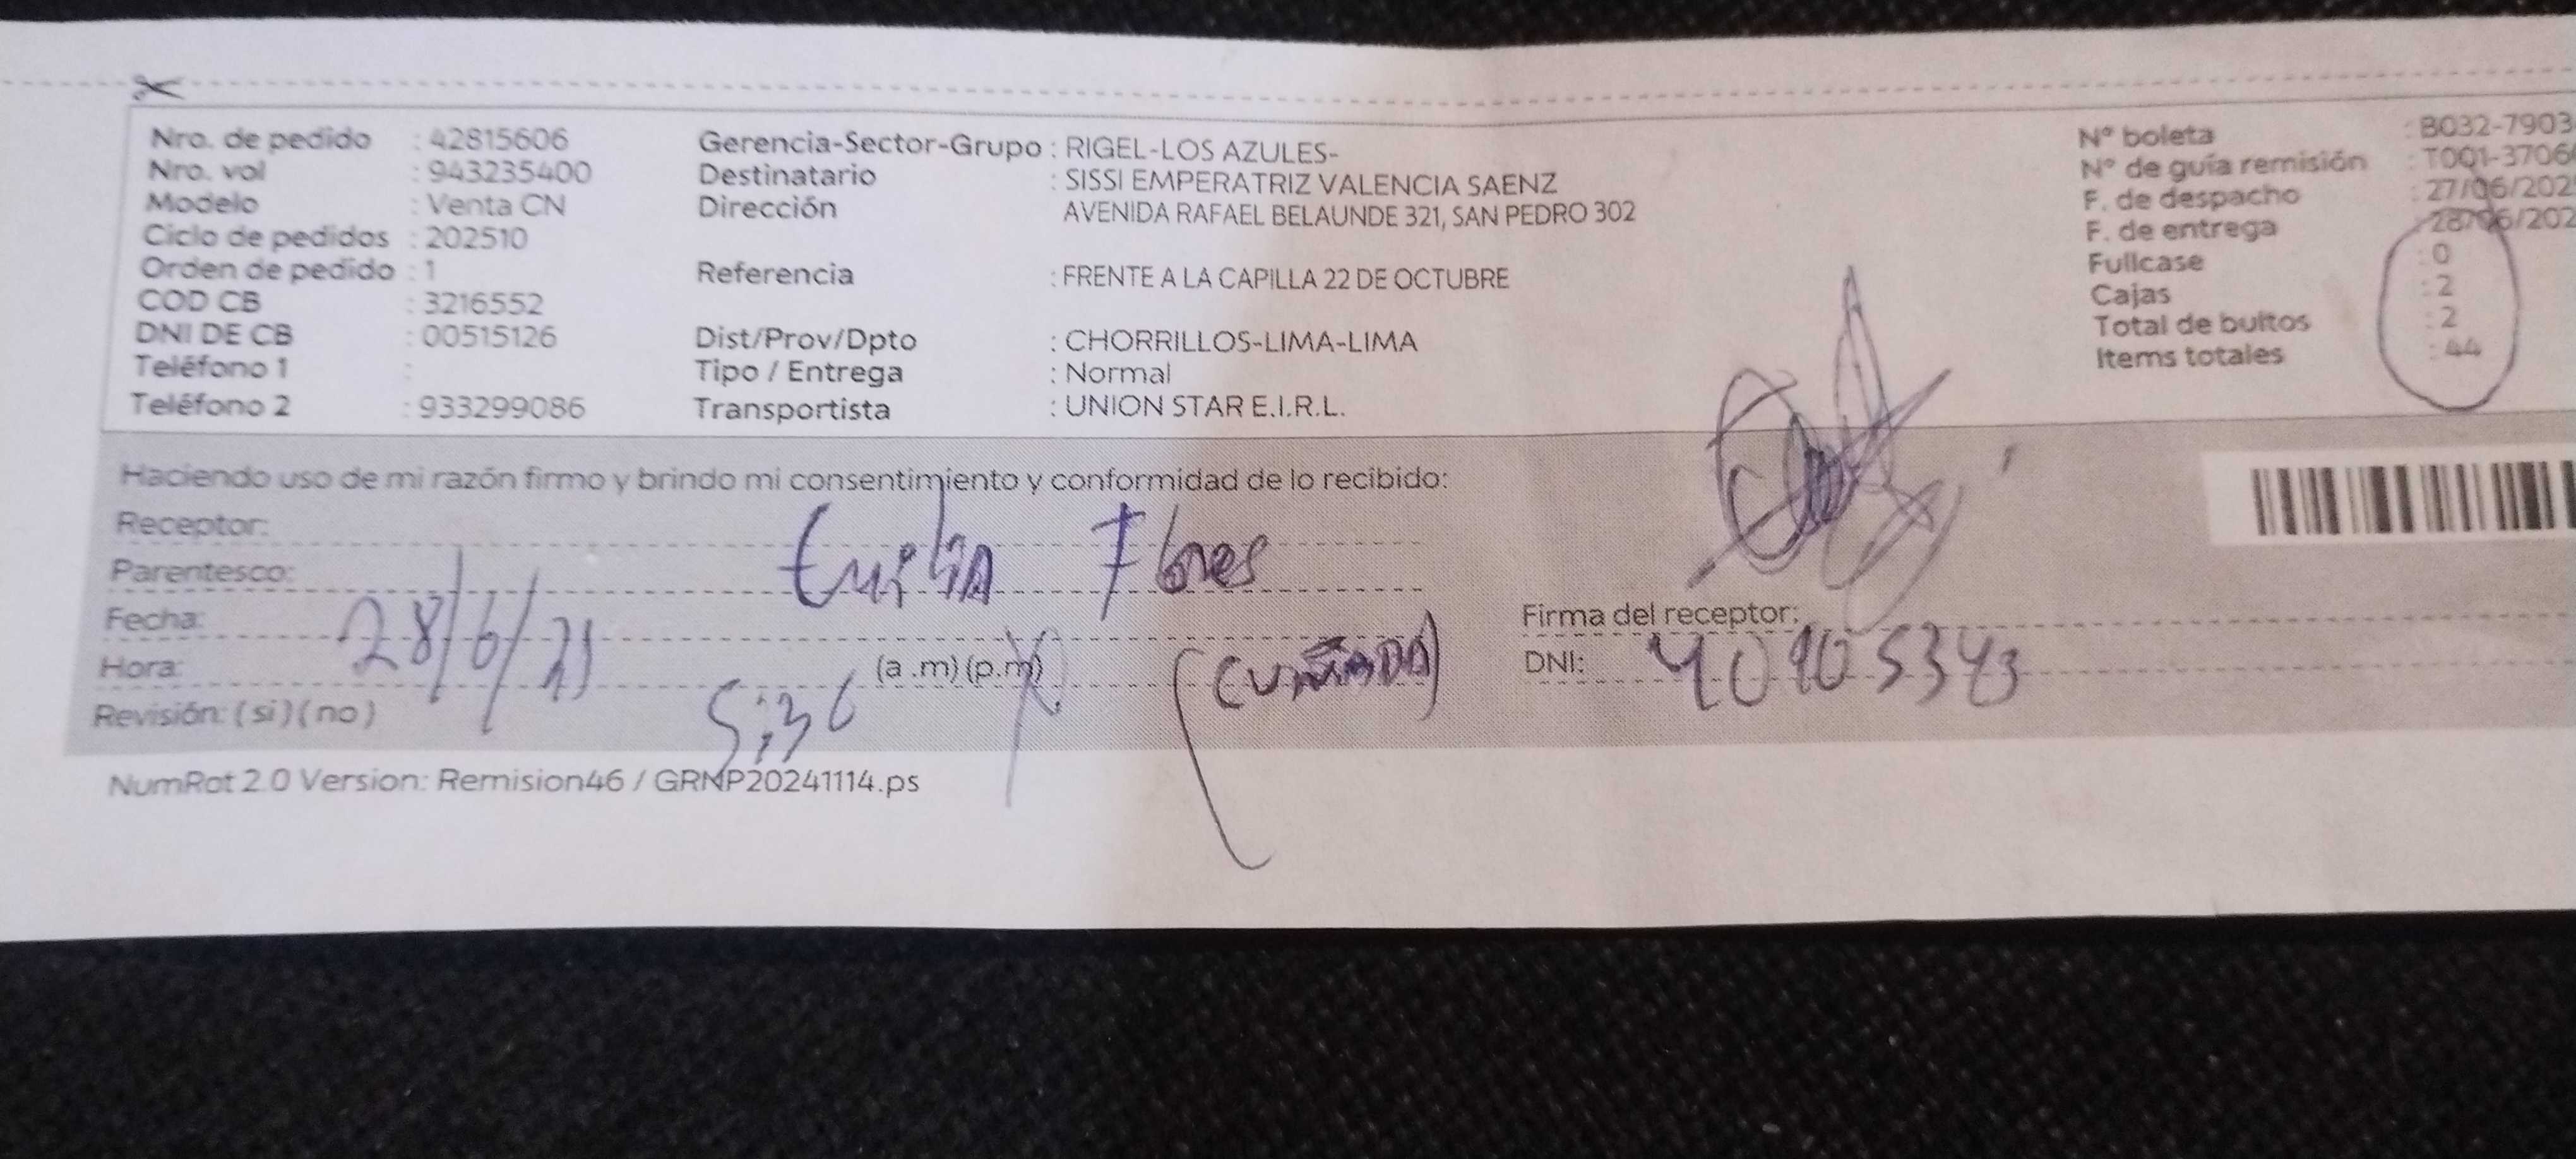 Nro. de pedido : 42815606
Nro. vol : 943235400
Modelo : Venta CN
Ciclo de pedidos : 202510
Orden de pedido : 1
COD CB : 3216552
DNI DE CB : 00515126
Teléfono 1 :
Teléfono 2 : 933299086
Gerencia-Sector-Grupo : RIGEL-LOS AZULES-
Destinatario : SISSI EMPERATRIZ VALENCIA SAENZ
Dirección AVENIDA RAFAEL BELAUNDE 321, SAN PEDRO 302
Referencia : FRENTE A LA CAPILLA 22 DE OCTUBRE
Dist/Prov/Dpto : CHORRILLOS-LIMA-LIMA
Tipo / Entrega : Normal
Transportista : UNION STAR E.I.R.L.
N° boleta : B032-7903
N° de guía remisión : T001-3706
F. de despacho : 27/06/202
F. de entrega : 28/06/202
Fullcase : 0
Cajas : 2
Total de bultos : 2
Items totales : 44
Haciendo uso de mi razón firmo y brindo mi consentimiento y conformidad de lo recibido:
Receptor: Emilia Flores
Parentesco: (CUÑADA)
Fecha: 28/6/
Hora: 5:36 (a .m) (p.m)
Revisión: ( si ) ( no )
Firma del receptor:
DNI:
NumRot 2.0 Version: Remision46 / GRNP20241114.ps